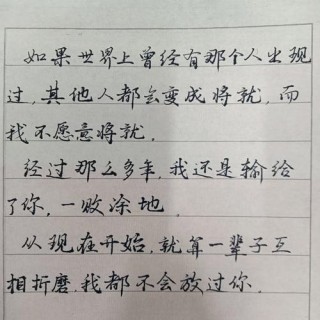 如果世界上曾经有那个人出现
过,其他人都会变成将就,而
我不愿意将就.
经过那么多年,我还是输给
了你,一败涂地.
从现在开始,就算一辈子互
相折磨.我都不会放过你.